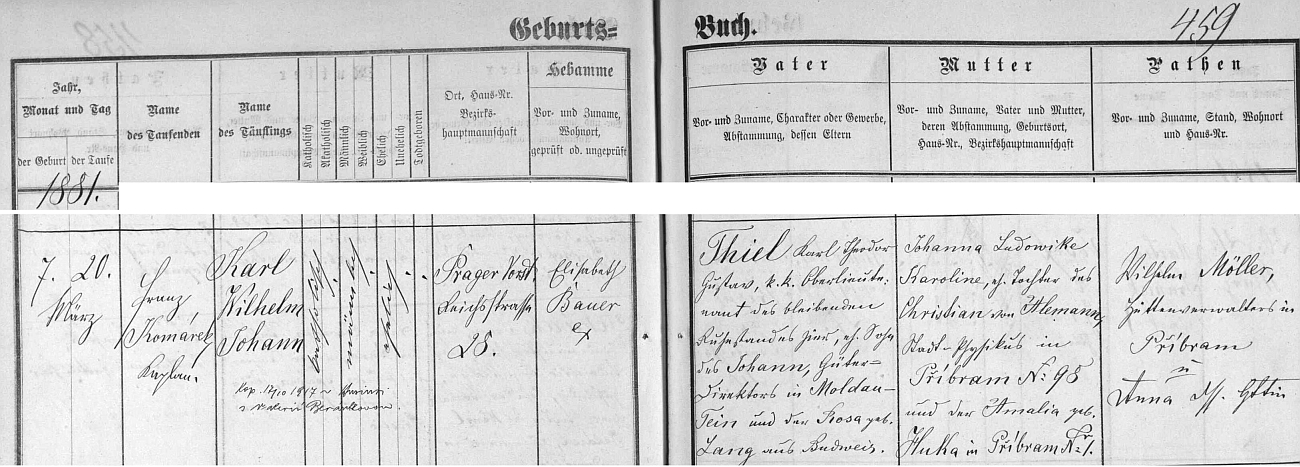 Geburts= Buch.
459
Jahr,
Monat und Tag
der Geburt
der Taufe
Name
des Taufenden
Name
des Täuflings
Katholisch
Akatholisch
Männlich
Weiblich
Ehelich
Unehelich
Todtgeboren
Ort, Haus-Nr.
Bezirks-
hauptmannschaft
Hebamme
Vor- und Zuname,
Wohnort,
geprüft od. ungeprüft
Vater
Vor- und Zuname, Charakter oder Gewerbe,
Abstammung, dessen Eltern
Mutter
Vor- und Zuname, Vater und Mutter,
deren Abstammung, Geburtsort,
Haus-Nr., Bezirkshauptmannschaft
Pathen
Vor- und Zuname, Stand, Wohnort
und Haus-Nr.
1881.
7. 20.
März
Franz
Komárek
Kaplan.
Karl
Wilhelm
Johann
katholisch
männlich
ehelich
Prager Vorst.
Reichsstrasse
28.
Elisabeth
Bauer
Thiel Karl Theodor
Gustav, k. k. Oberlieute-
nant des bleibenden
Ruhestandes hier, eh. Sohn
des Johann, Güter=
Direktors in Moldau-
Tein und der Rosa geb.
Lang aus Budweis.
Johanna Ludowike
Karoline, eh. Tochter des
Christian von Alemann,
Stadt-Physikus in
Přibram N: 98
und der Amalia geb.
Huka in Přibram Nr. 1.
Wilhelm Möller,
Hüttenverwalters in
Přibram
u
Anna